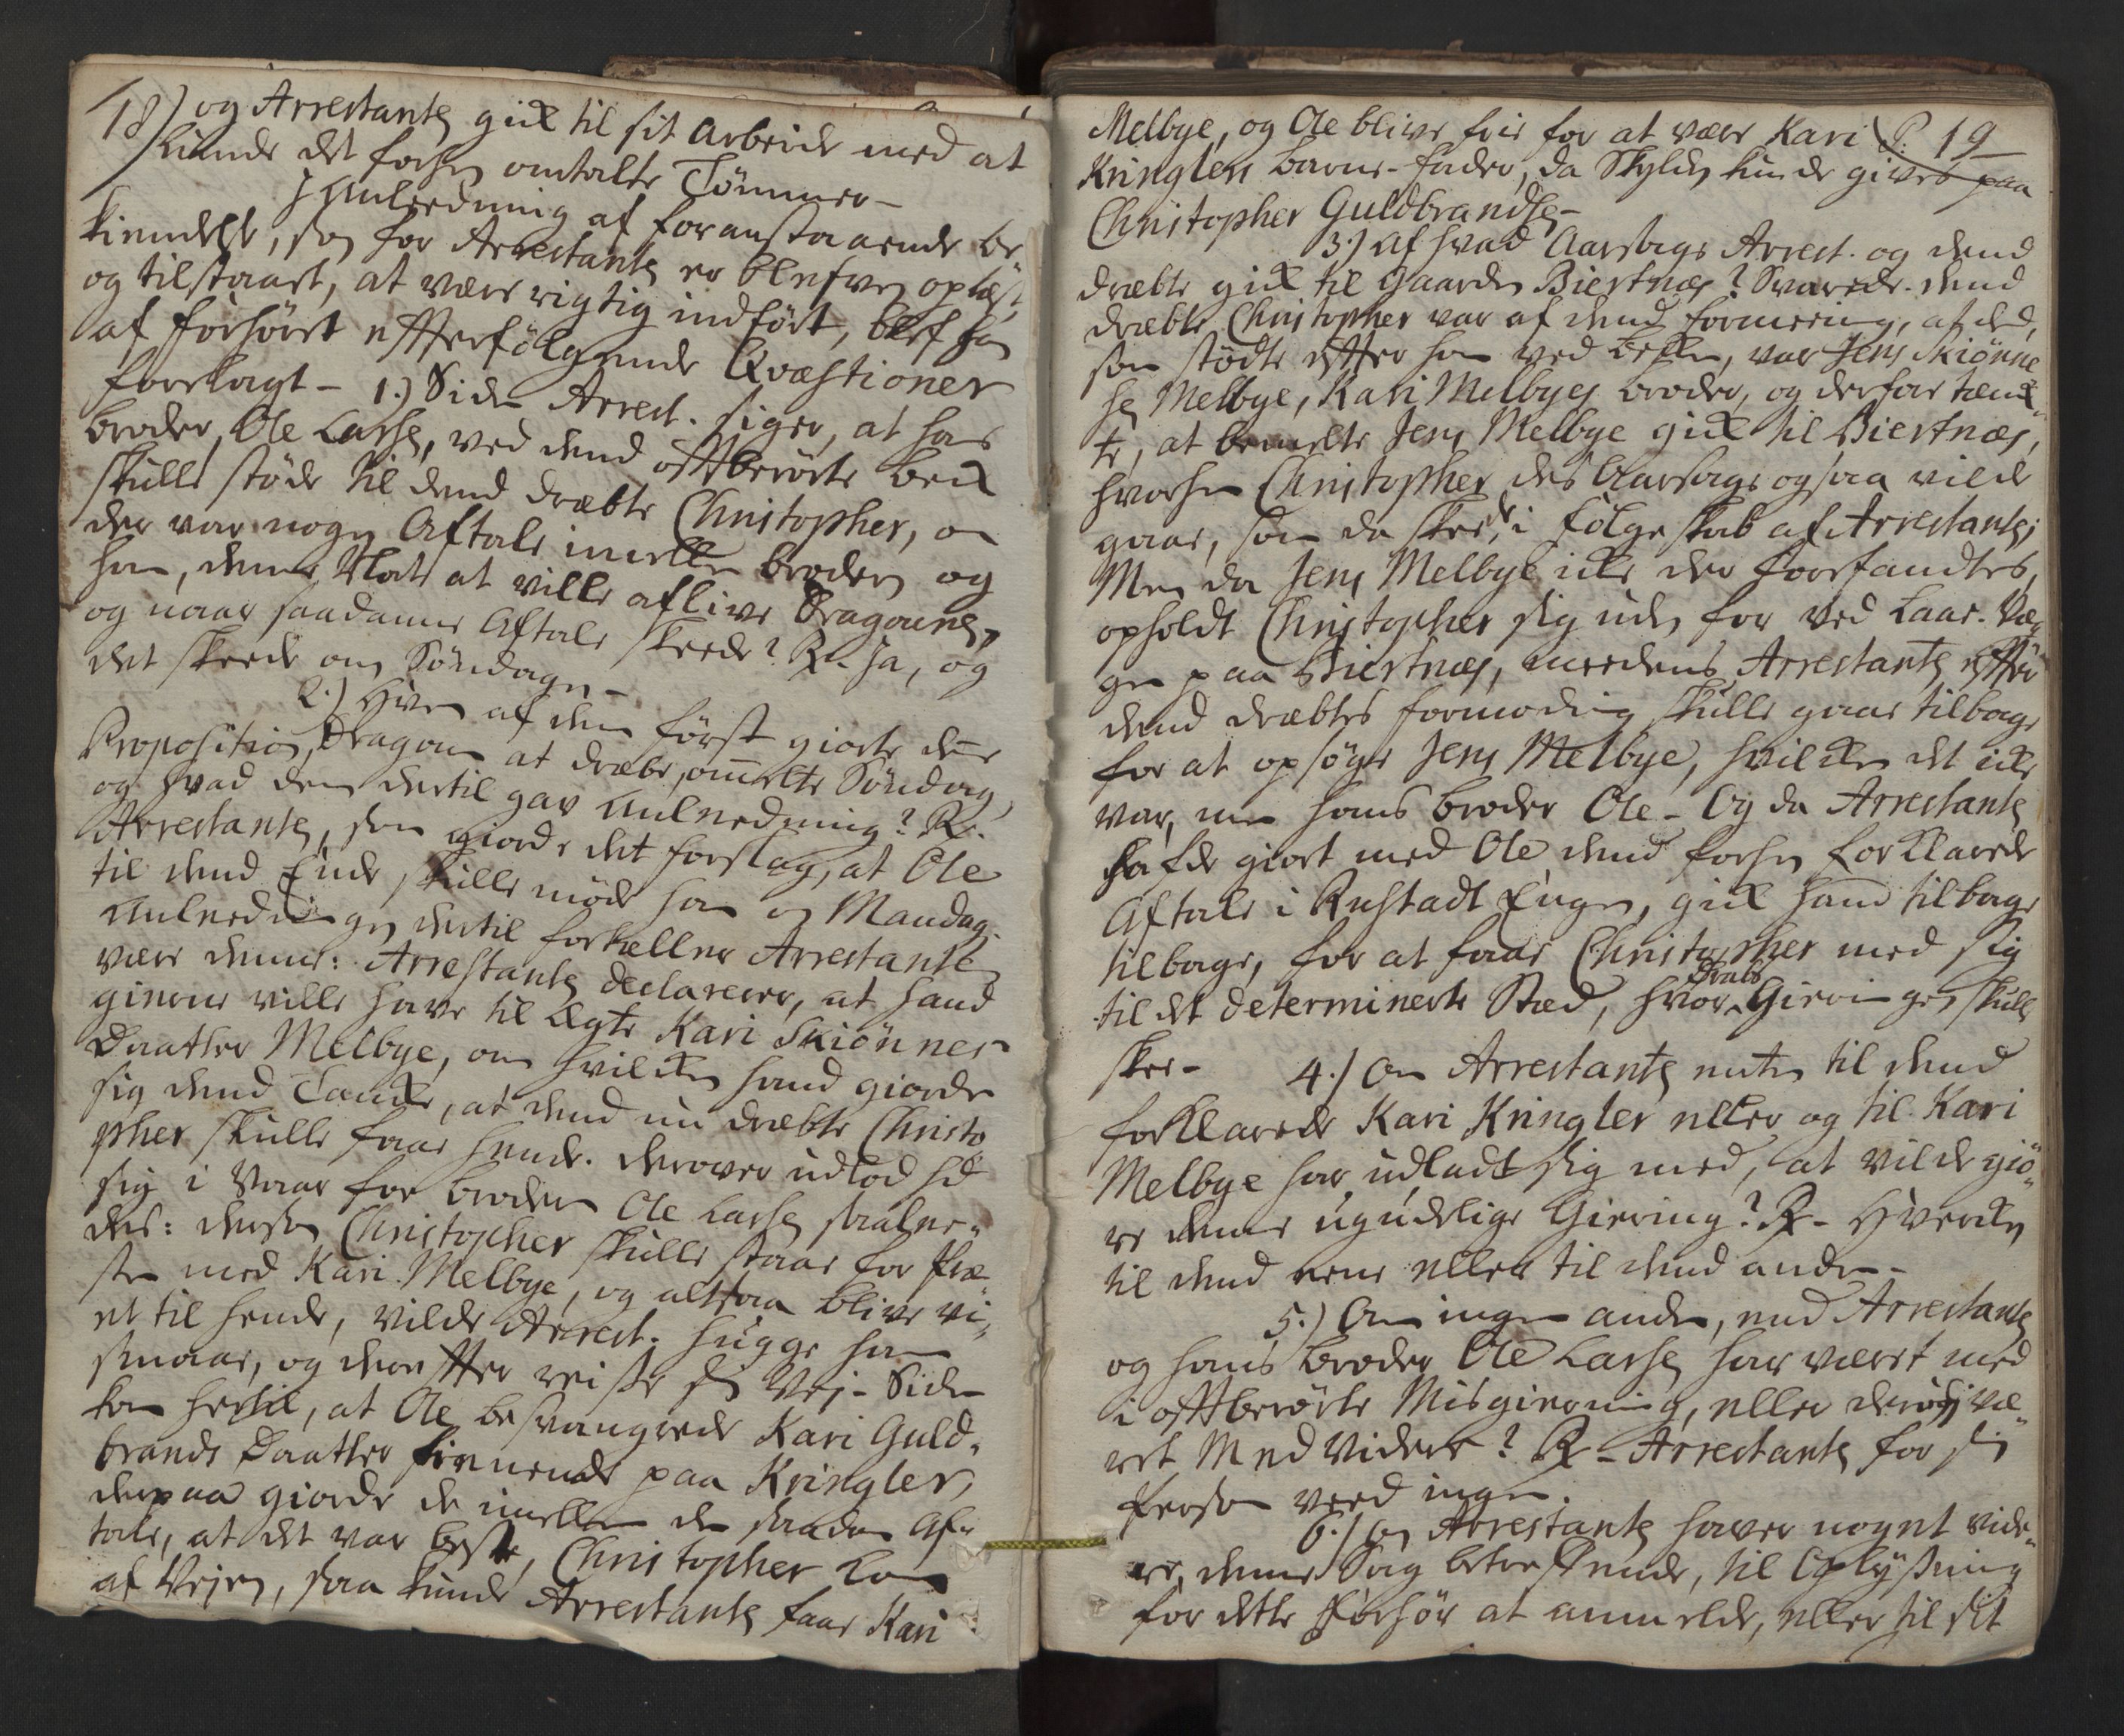 18) og Arrestanten gik til sit arbeide med at
kiende det forhen omtalte Tømmer-
I Anledning af foranstaaende be
kiendelse, som for Arrestanten er blefven oplæst,
og tilstaaet, at være rigtig indført, blef ham
af forhøret efterfølgende Qvæstioner
forelagt - 1.) Siden Arrest. siger, at hans
broder, Ole Larsen, ved dend oftberørte bek
skulle støde til dend dræbte Christopher, om
der var nogen Aftale imellem broderen og
ham, denne Nat at ville aflive Dragounen,
og naar saadanne Aftale skeede? R. Ja, og
det skeede om Søndagen-
2.) Hvem af dem først giorte denne
Proposition, Dragoun at dræbe, ommelte Søndag,
og hvad dem dertil gav Anledning? R.
Arrestanten, som giorde det forslag, at Ole
til dend Ende skulle møde ham om Mandag.
Anledningen dertil fortæller Arrestanten
være denne: Arrestanten declarerer, at hand
gierne ville have til Ægte Kari Skiønnes
Daatter Melbye, om hvilken hand giorde
sig dend Tanke, at dend nu dræbte Christo
pher skulle faae hende. derover udlod hd
sig i Vaar for broderen Ole Larsen saalne-
des: dersom Christopher skulle staae for Præ-
sten med Kari Melbye, og altsaa blive vi-
et til hende, vilde Arrest. hugge ham
smaae, og derefter reise sin Vej- Siden
kom hertil, at Ole besvangrede Kari Guld-
brands Daatter tienende paa Kringler,
derpaa giorde de imellem dem saadan Af-
tale, at det var best, Christopher kom
af Vejen, saa kunde Arrestanten faae Kari
P: 19
Melbye, og Ole blive frie for at være Kari
Kringlers barne-fader, da Skylden kunde gives paa
Christopher Guldbrandsen-
3.) Af hvad Aarsage Arrest. og dend
dræbte gik til Gaarden Biertnæs? Svarede. dend
dræbte Christopher var af dend formeening, at dend,
som stødte efter ham ved bekken, var Jens Skiønne
sen Melbye, Kari Melbyes broder, og derfor tænk-
te, at bemelte Jens Melbye gik til Biertnæs,
hvorhen Christopher des Aarsage ogsaa vilde
gaae, som da skeede, i følgeskab af Arrestanten;
Men da Jens Melbye ikke der forefandtes,
opholdt Christopher sig uden for ved Laae-Væg
gen paa Biertnæs, imedens Arrestanten efter
dend dræbtes formoding skulle gaae tilbage
for at opsøge Jens Melbye, hvilken det ikke
var, men hans broder Ole - Og da Arrestanten
hafde giort med Ole dend forhen forklarede
Aftale i Rustadt Engen, gik hand tilbage
tilbage, for at faae Christopher med sig
til det determinerte Stæd, hvor Drabs Gierningen skulle
skee- 4.) Om Arrestanten enten til dend
forklarede Kari Kringler eller og til Kari
Melbye har udladt sig med, at vilde giø-
re denne ugudelige Gierning? R- Hverken
til dend eene eller til dend anden-
5.) Om ingen anden, end Arrestanten
og hans broder Ole Larsen har været med
i oftberørte Misgierning, eller derudj væ-
ret Medvidere? R- Arrestanten for sin
Person veed ingen.
6.) Om Arrestanten haver noget vide-
re, denne Sag betreffende, til Oplysning
for dette Forhør at anmelde, eller til sit